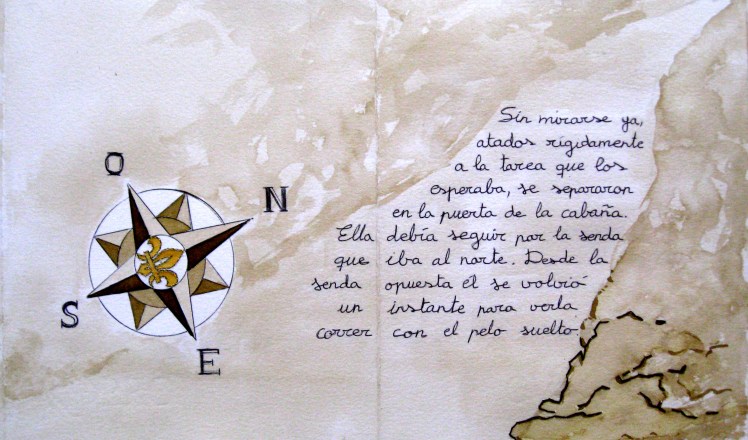 O
N
S
E
Sin mirarse ya,
atados rígidamente
a la tarea que los
esperaba, se separaron
en la puerta de la cabaña.
Ella debía seguir por la senda
que iba al norte. Desde la
senda opuesta él se volvió
un instante para verla
correr con el pelo suelto.